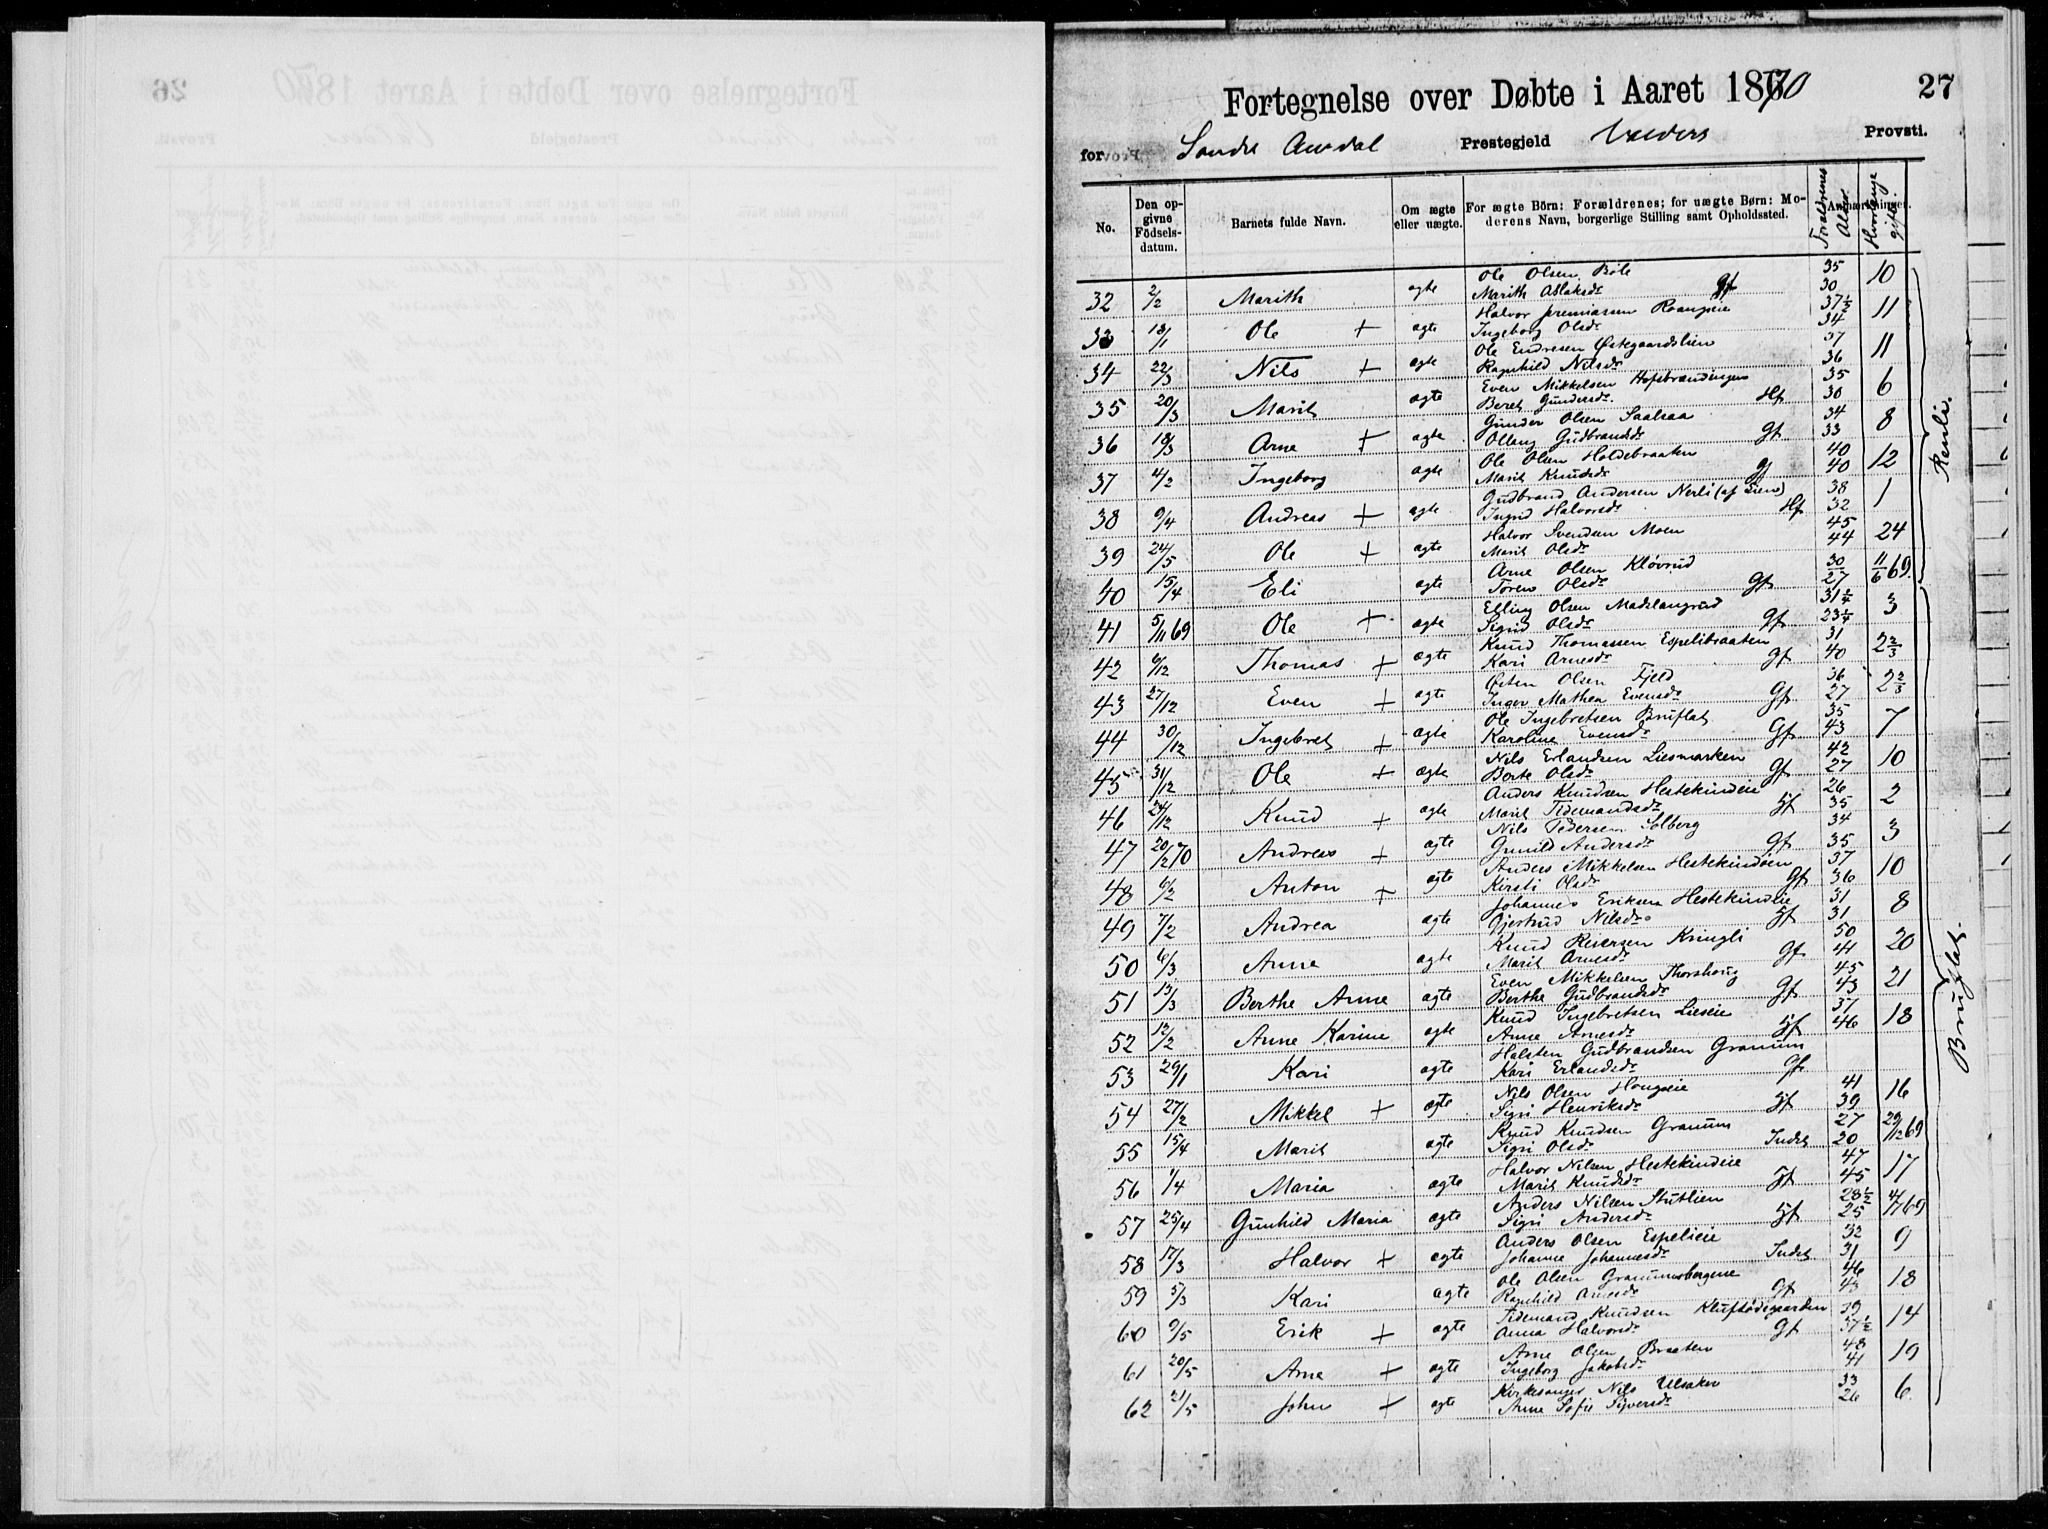 Fortegnelse over Døbte i Aaret 1870
27
for Søndre Aurdal Prestegjeld Valders Provsti.
No.
Den opgivne Födselsdatum.
Barnets fulde Navn.
Om ægte eller uægte.
For ægte Börn: Forældrenes; for uægte Børn: Moderens Navn, borgerlige Stilling samt Opholdssted.
Forældrenes Alder.
Anmærkninger.
Hvorlænge gifte.
Ole Olsen Böle 35 10
32 2/2 Marith ægte Marith Aslaksdr Gf 30
Halvor Jermiassen 37½ 11
33 13/1 Ole + ægte Ingeborg Olsdr 34
Ole Endresen Østegaardslien 37 11
34 22/3 Nils + ægte Ragnhild Nilsdr 36
Even Mikkelsen Hofsbraadingen 35 6
35 20/3 Marit ægte Beret Gundersdr. Hf 30
Gunder Olsen Saalsaa 34 8
36 18/3 Arne + ægte Ollaug Gudbrandsdr Gf 33
Ole Olsen Holdebraaten 40 12
37 4/2 Ingeborg ægte Marit Knudsdr Gf 40
Gudbrand Andersen Nerli (af Lien) 38 1
38 9/4 Andreas + ægte Ingrid Halvorsdr Hf 32
Halvor Svendsen Moen 45 24
39 24/5 Ole + ægte Marit Olsdr 44
Arne Olsen Kløvrud 30 11/6 69.
40 15/4 Eli ægte Toren Olsdr Gf 27
Renli.
Elling Olsen Madslangrud 31¼ 3
41 5/11 69 Ole + ægte Sigrid Olsdr Gf 23¼
Knud Thomassen Espelibraaten 31 2⅔
42 6/12 Thomas + ægte Kari Arnesdr Gf 40
Østen Olsen Fjeld 36 2⅔
43 27/12 Even + ægte Inger Mathea Evensdr Gf 27
Ole Ingebretsen Bruflat 35 7
44 30/12 Ingebret + ægte Karoline Evensdr Gf 43
Nils Erlandsen Liesmarken 42 10
45 31/12 Ole + ægte Berte Olsdr Gf 27
Anders Knudsen Hestekindeie 26 2
46 24/12 Knud + ægte Marit Tidemandsdr Gf 35
Nils Pedersen Solberg 34 3
47 20/2 70 Andreas + ægte Gunild Andersdr Gf 35
Anders Mikkelsen Hestekindeien 37 10
48 6/2 Anton + ægte Kirsti Olsdr Gf 36
Johannes Eriksen Hestekindeie 31 8
49 7/2 Andrea ægte Gjertrud Nilsdr Gf 31
Knud Reiersen Kringli 50 20
50 6/3 Anne ægte Marit Arnesdr Gf 41
Even Mikkelsen Thorshoug 45 21
51 13/3 Berthe Anne ægte Berthe Gudbrandsdr Gf 43
Knud Ingebretsen Lieseie 37 18
52 12/2 Anne Karine ægte Anne Arnesdr Gf 46
Halsten Gudbrandsen Granum
53 29/1 Kari ægte Kari Erlandsdr Gf
Nils Olsen Hougseie 41 16
54 27/2 Mikkel + ægte Sigri Henriksdr Gf 39
Knud Knudsen Granum 27 29/12 69
55 15/4 Marit ægte Sigri Olsdr Indst 20
Halvor Nilsen Hestekindeie 47 17
56 1/4 Maria ægte Marit Knudsdr Gf 45
Anders Nilsen Stutlien 28½ 4/7 69
57 25/4 Gunhild Maria ægte Sigri Andersdr Gf 25
Anders Olsen Espelieie 32 9
58 17/3 Halvor + ægte Johanne Johannesdr Indst 31
Ole Olsen Granumsbergene 46 18
59 5/3 Kari ægte Ragnhild Arnesdr Gf 43
Tidemand Knudsen Kluftödegaarden 39 14
60 9/5 Erik + ægte Anna Halvorsdr Gf 37½
Arne Olsen Braaten 48 19
61 20/5 Arne + ægte Ingeborg Jakobsdr 41
Kirkesanger Nils Ulsaker 33 6.
62 21/5 John + ægte Anne Sofie Syversdr 26
Bruflat.